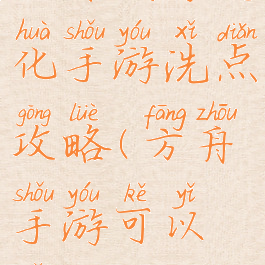 huà shǒu yóu xǐ diǎn
化手游洗点
gōng lüè fāng zhōu
攻略(方舟
shǒu yóu kě yǐ
手游可以